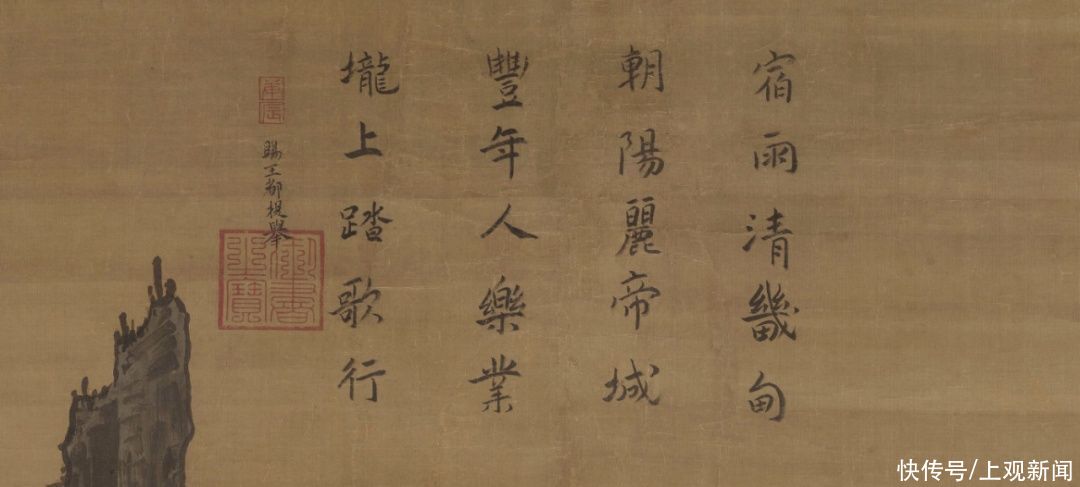 宿雨清畿甸
朝陽麗帝城
豐年人樂業
壠上踏歌行
賜王都提舉
御書之寶
快传号/上观新闻